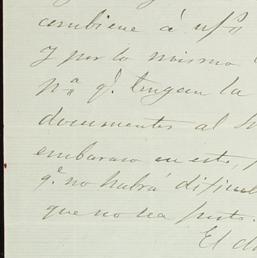 combiene á
y por lo mismo
pª qᵉ tengan la
documentos al
embarazo en este,
qᵉ no habrá dificul
que no sea justo.
El